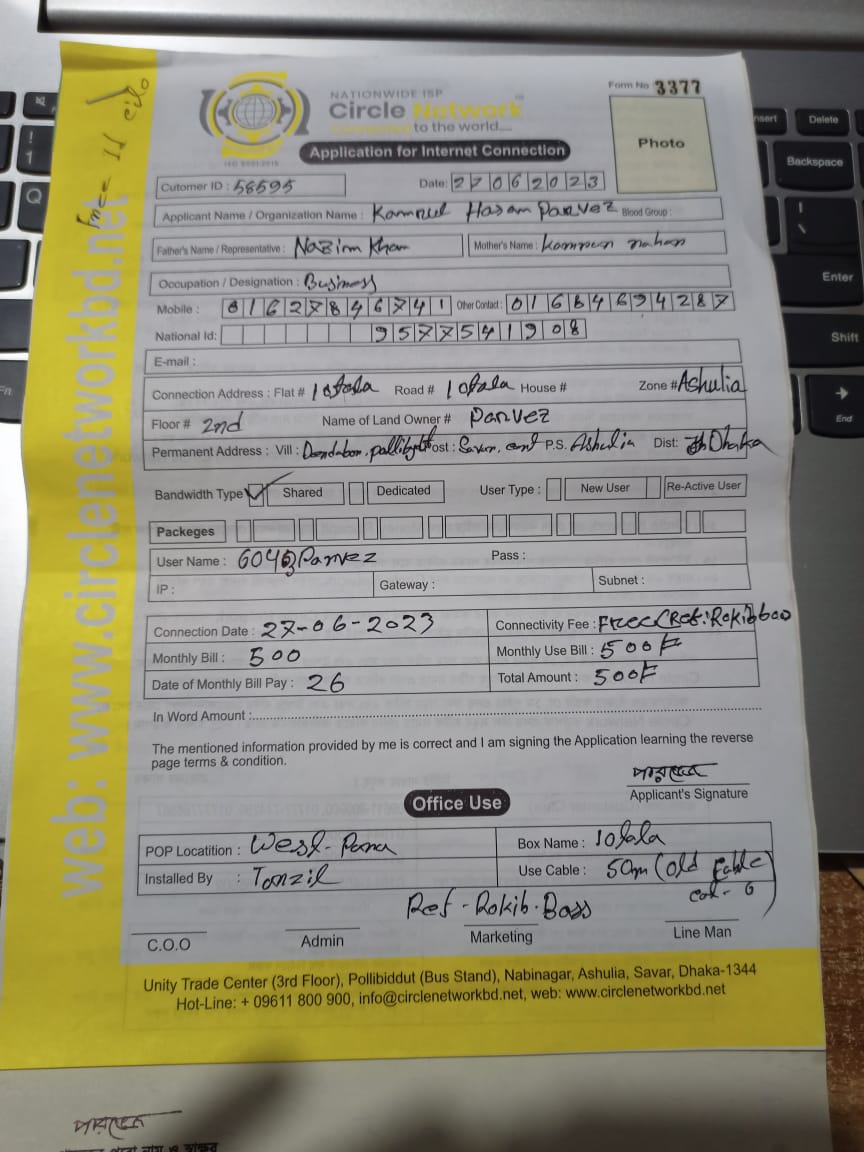 NATIONWIDE ISP
Circle Network
Connected to the world....
ISO 9001:2015
Form No 3377
Photo
Application for Internet Connection
Cutomer ID : 58595
Date: 27062023
Applicant Name / Organization Name : Kamrul Hasan Parvez Blood Group :
Father's Name / Representative : Nazim Khan
Mother's Name :
Occupation / Designation : Business
Mobile : 01627846741 Other Contact : 01664694287
National Id: 9577541908
E-mail :
Connection Address : Flat # 10tala Road # 10tala House # Zone # Ashulia
Floor # 2nd Name of Land Owner # Parvez
Permanent Address : Vill : Post : Savar, cant P.S. Ashulia Dist: Dhaka
Bandwidth Type Shared Dedicated User Type : New User Re-Active User
Packeges
User Name : Parvez Pass :
IP : Gateway : Subnet :
Connection Date : 27-06-2023
Connectivity Fee : Free (Ref: Rokib
Monthly Bill : 500
Monthly Use Bill : 500
Date of Monthly Bill Pay : 26
Total Amount : 500
In Word Amount :
The mentioned information provided by me is correct and I am signing the Application learning the reverse
page terms & condition.
পারভেজ
Applicant's Signature
Office Use
POP Locatition : West-Para
Box Name : 10tala
Installed By : Tanzil
Use Cable : 50m (old Cable)
Cat-6
Ref-Rokib.Boss
C.O.O
Admin
Marketing
Line Man
Unity Trade Center (3rd Floor), Pollibiddut (Bus Stand), Nabinagar, Ashulia, Savar, Dhaka-1344
Hot-Line: + 09611 800 900, info@circlenetworkbd.net, web: www.circlenetworkbd.net
web: www.circlenetworkbd.net
পারভেজ